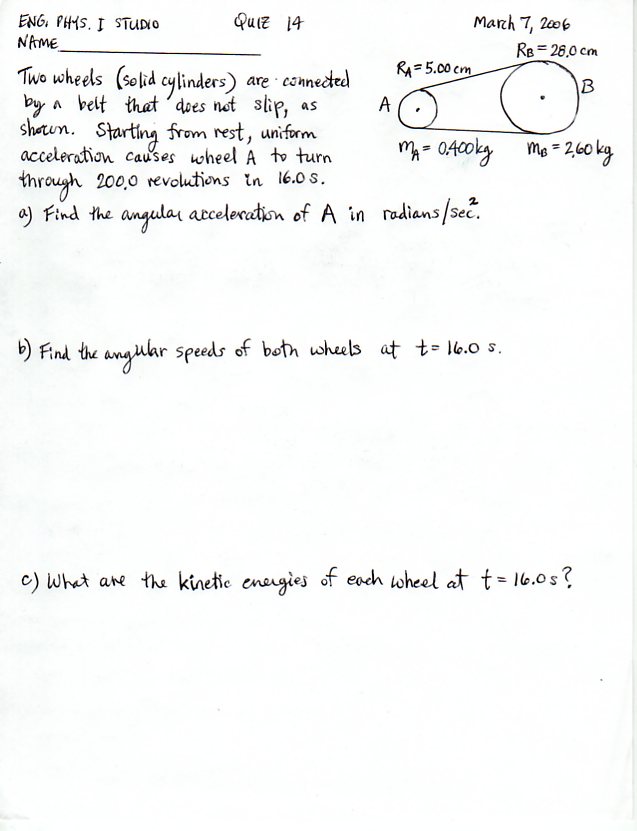 ENG. PHYS. I STUDIO QUIZ 14 March 7, 2006
NAME
Two wheels (solid cylinders) are connected
by a belt that does not slip, as
shown. Starting from rest, uniform
acceleration causes wheel A to turn
through 200.0 revolutions in 16.0 s.
RB = 26.0 cm
RA = 5.00 cm
A
B
mA = 0.400 kg mB = 2.60 kg
a) Find the angular acceleration of A in radians/sec².
b) Find the angular speeds of both wheels at t = 16.0 s.
c) What are the kinetic energies of each wheel at t = 16.0 s?